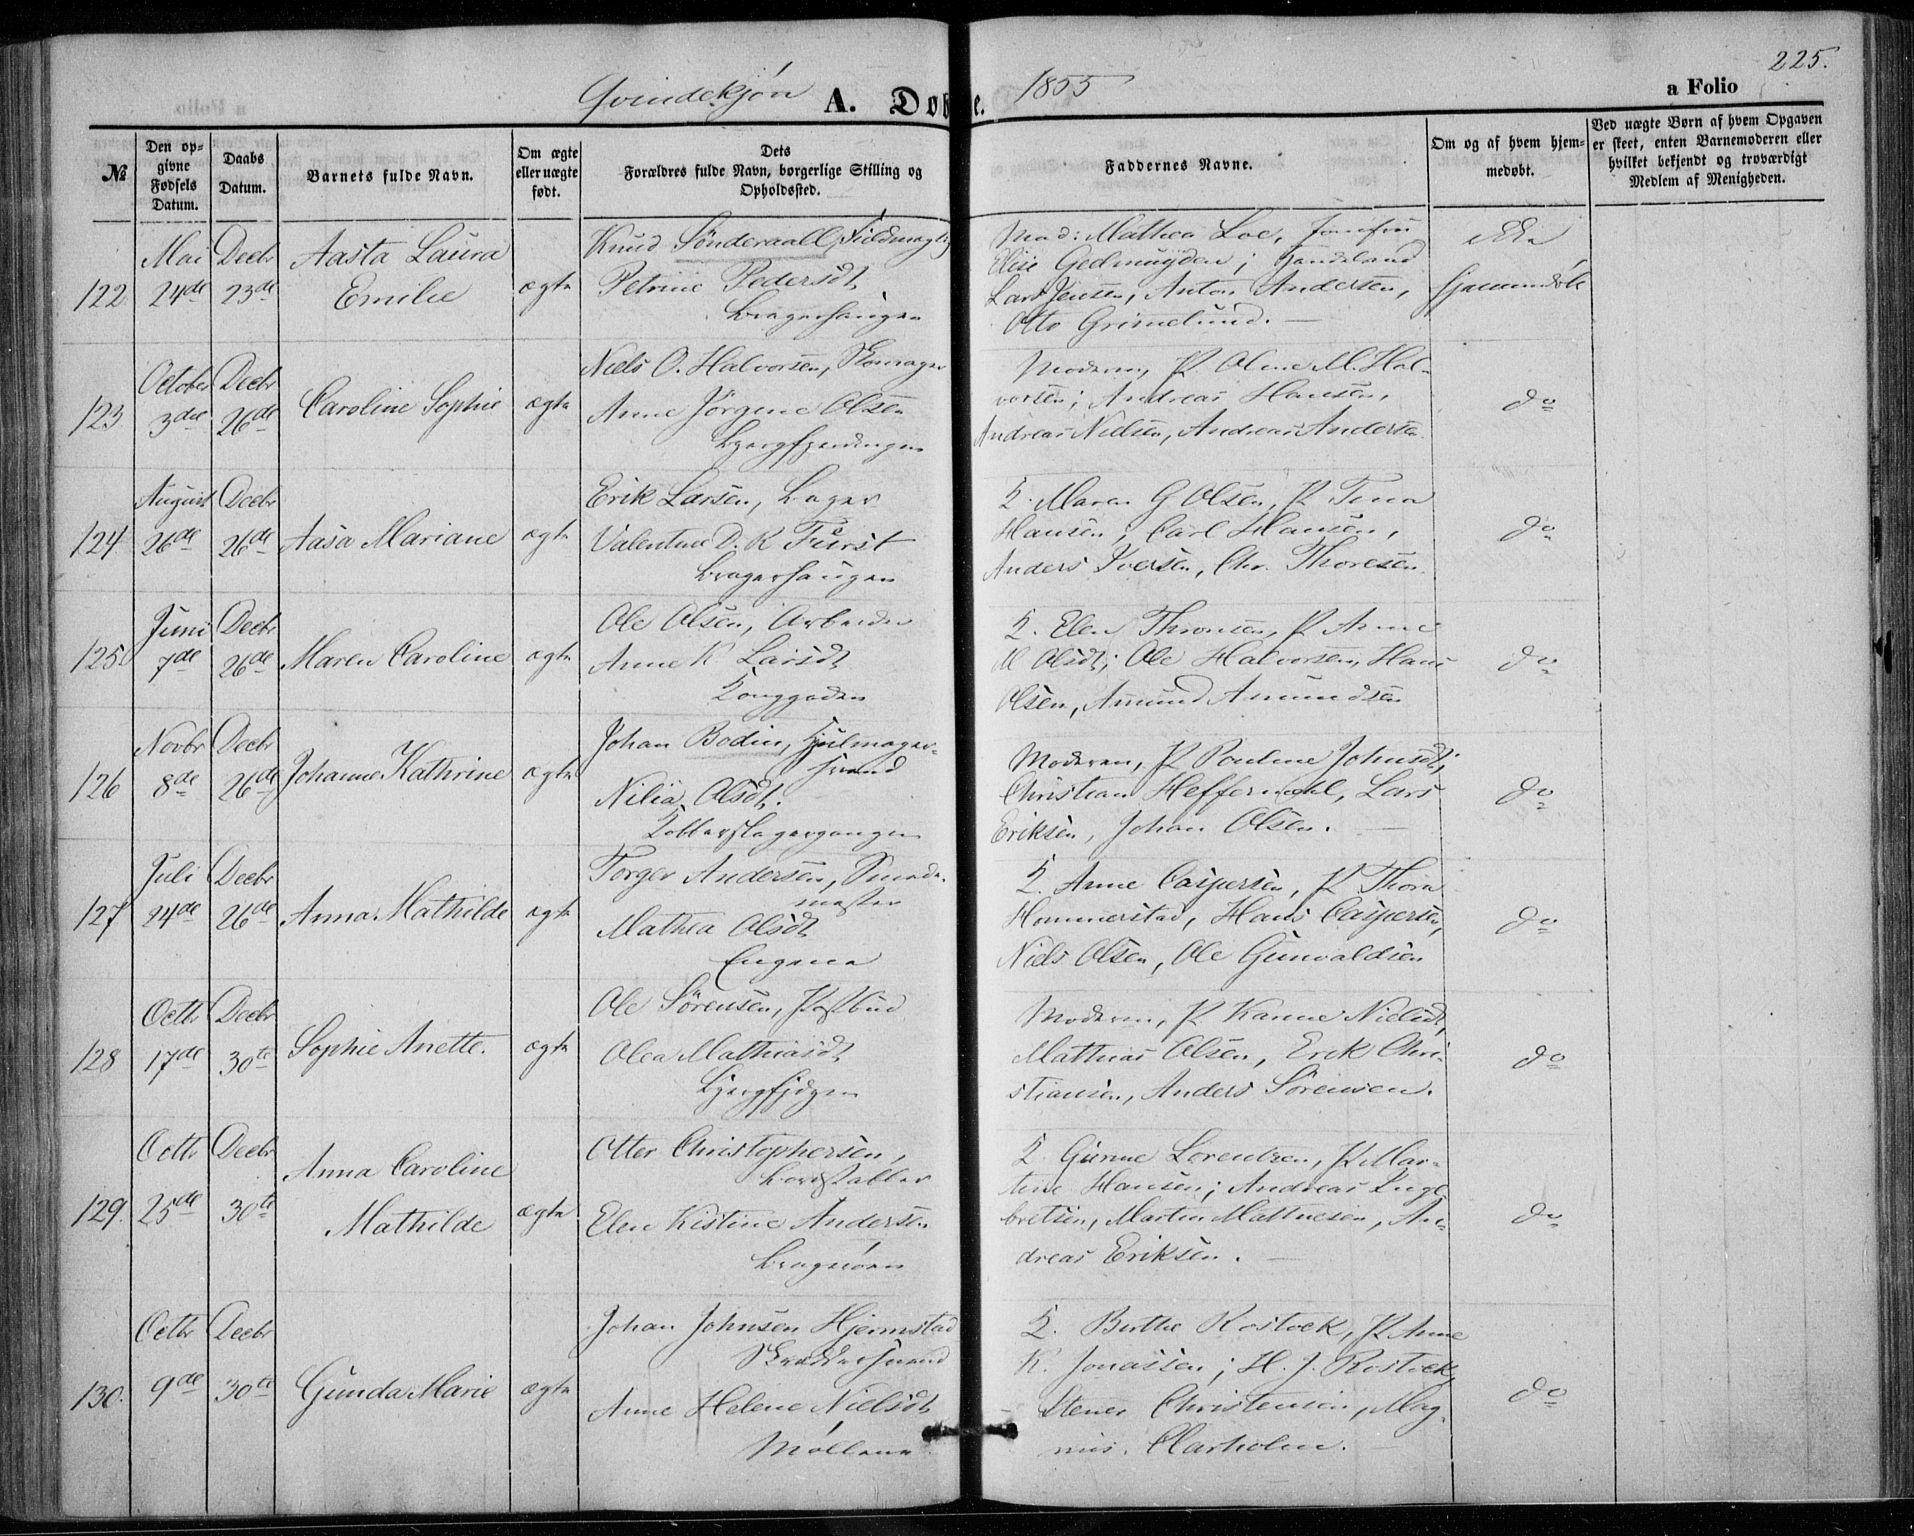 Qvindekjøn A. Døbte. 1855 a Folio 225.
№
Den opgivne Fødsels Datum.
Daabs Datum.
Barnets fulde Navn.
Om ægte eller uægte født.
Dets Forældres fulde Navn, borgerlige Stilling og Opholdssted.
Faddernes Navne.
Om og af hvem hjemmedøbt.
Ved uægte Børn af hvem Opgaven er skeet, enten Barnemoderen eller hvilket bekjendt og troværdigt Medlem af Menigheden.
122 Mai 24de Decbr 23de
Aasta Laura
Emilie
ægte
Knud Sönderaall,
Petrine Pedersdt
Mad: Mathea Loe, Jomfru
Elise
Lars Jensen, Anton Andersen,
Otto Grimelund. —
ikke
hjemmedøbt
123 October 3die Decbr 26de
Caroline Sophie
ægte
Niels O. Halvorsen, Skomager
Anne Jörgine Olsen
Moderen, P Oline M. Hal-
vorsen; Andreas Hansen,
Andreas Nielsen, Andreas Andersen
do
124 August 26de Decbr 26de
Aasa Mariane
ægte
Erik Larsen, Bager
Valentine D. K Fürst
Bragerhaugen
K. Maren G Olsen, P Tina
Hansen; Carl Hansen,
Anders Iversen, Chr. Thoresen.
do
125 Juni 7de Decbr 26de
Maren Caroline
ægte
Ole Olsen, Arbeider
Anne K. Larsdt
Konggaden
K. Elen Thronsen, P Anne
M Olsdt; Ole Halvorsen, Hans
Olsen, Amund Amundsen
do
126 Novbr 8de Decbr 26de
Johanne Kathrine
ægte
Johan Bodin, Hjulmager-
svend
Nilia Olsdt.
Kobberslagergangen
Moderen, P Pouline Johnsdt;
Christian Heffermehl, Lars
Eriksen, Johan Olsen. —
do
127 Juli 24de Decbr 26de
Anna Mathilde
ægte
Torger Andersen, Smede-
mester
Mathea Olsdt
Engene
K. Anne Caspersen, P Thora
Hommerstad, Hans Caspersen,
Niels Olsen, Ole Gunvaldsen
do
128 Octbr 17de Decbr 30te
Sophie Anette.
ægte
Ole Sörensen, Postbud
Olea Mathiasdt
Moderen, P Karine Nielsdt,
Mathias Olsen, Erik Chri-
stiansen, Anders Sörensen.
do
129. Octbr 25de Decbr 30te
Anna Caroline
Mathilde
ægte
Otter Christophersen,
Bordstabler
Elen Kistine Andersen
Bragerøen
K Gurine Lorentzen, P Mar-
tine Hansen; Andreas Inge-
bretsen, Martin Mathiesen, An-
dreas Eriksen. —
do
130. Octbr 9de Decbr 30te
Gunda Marie
ægte
Johan Johnsen Hjermstad
Skræddersvend
Anne Helene Nielsdt
Møllene
K. Birthe Rostock, P Anne
K. Jonassen; H. J. Rostock,
Stener Christensen, Mag-
nus Clarholm.
do